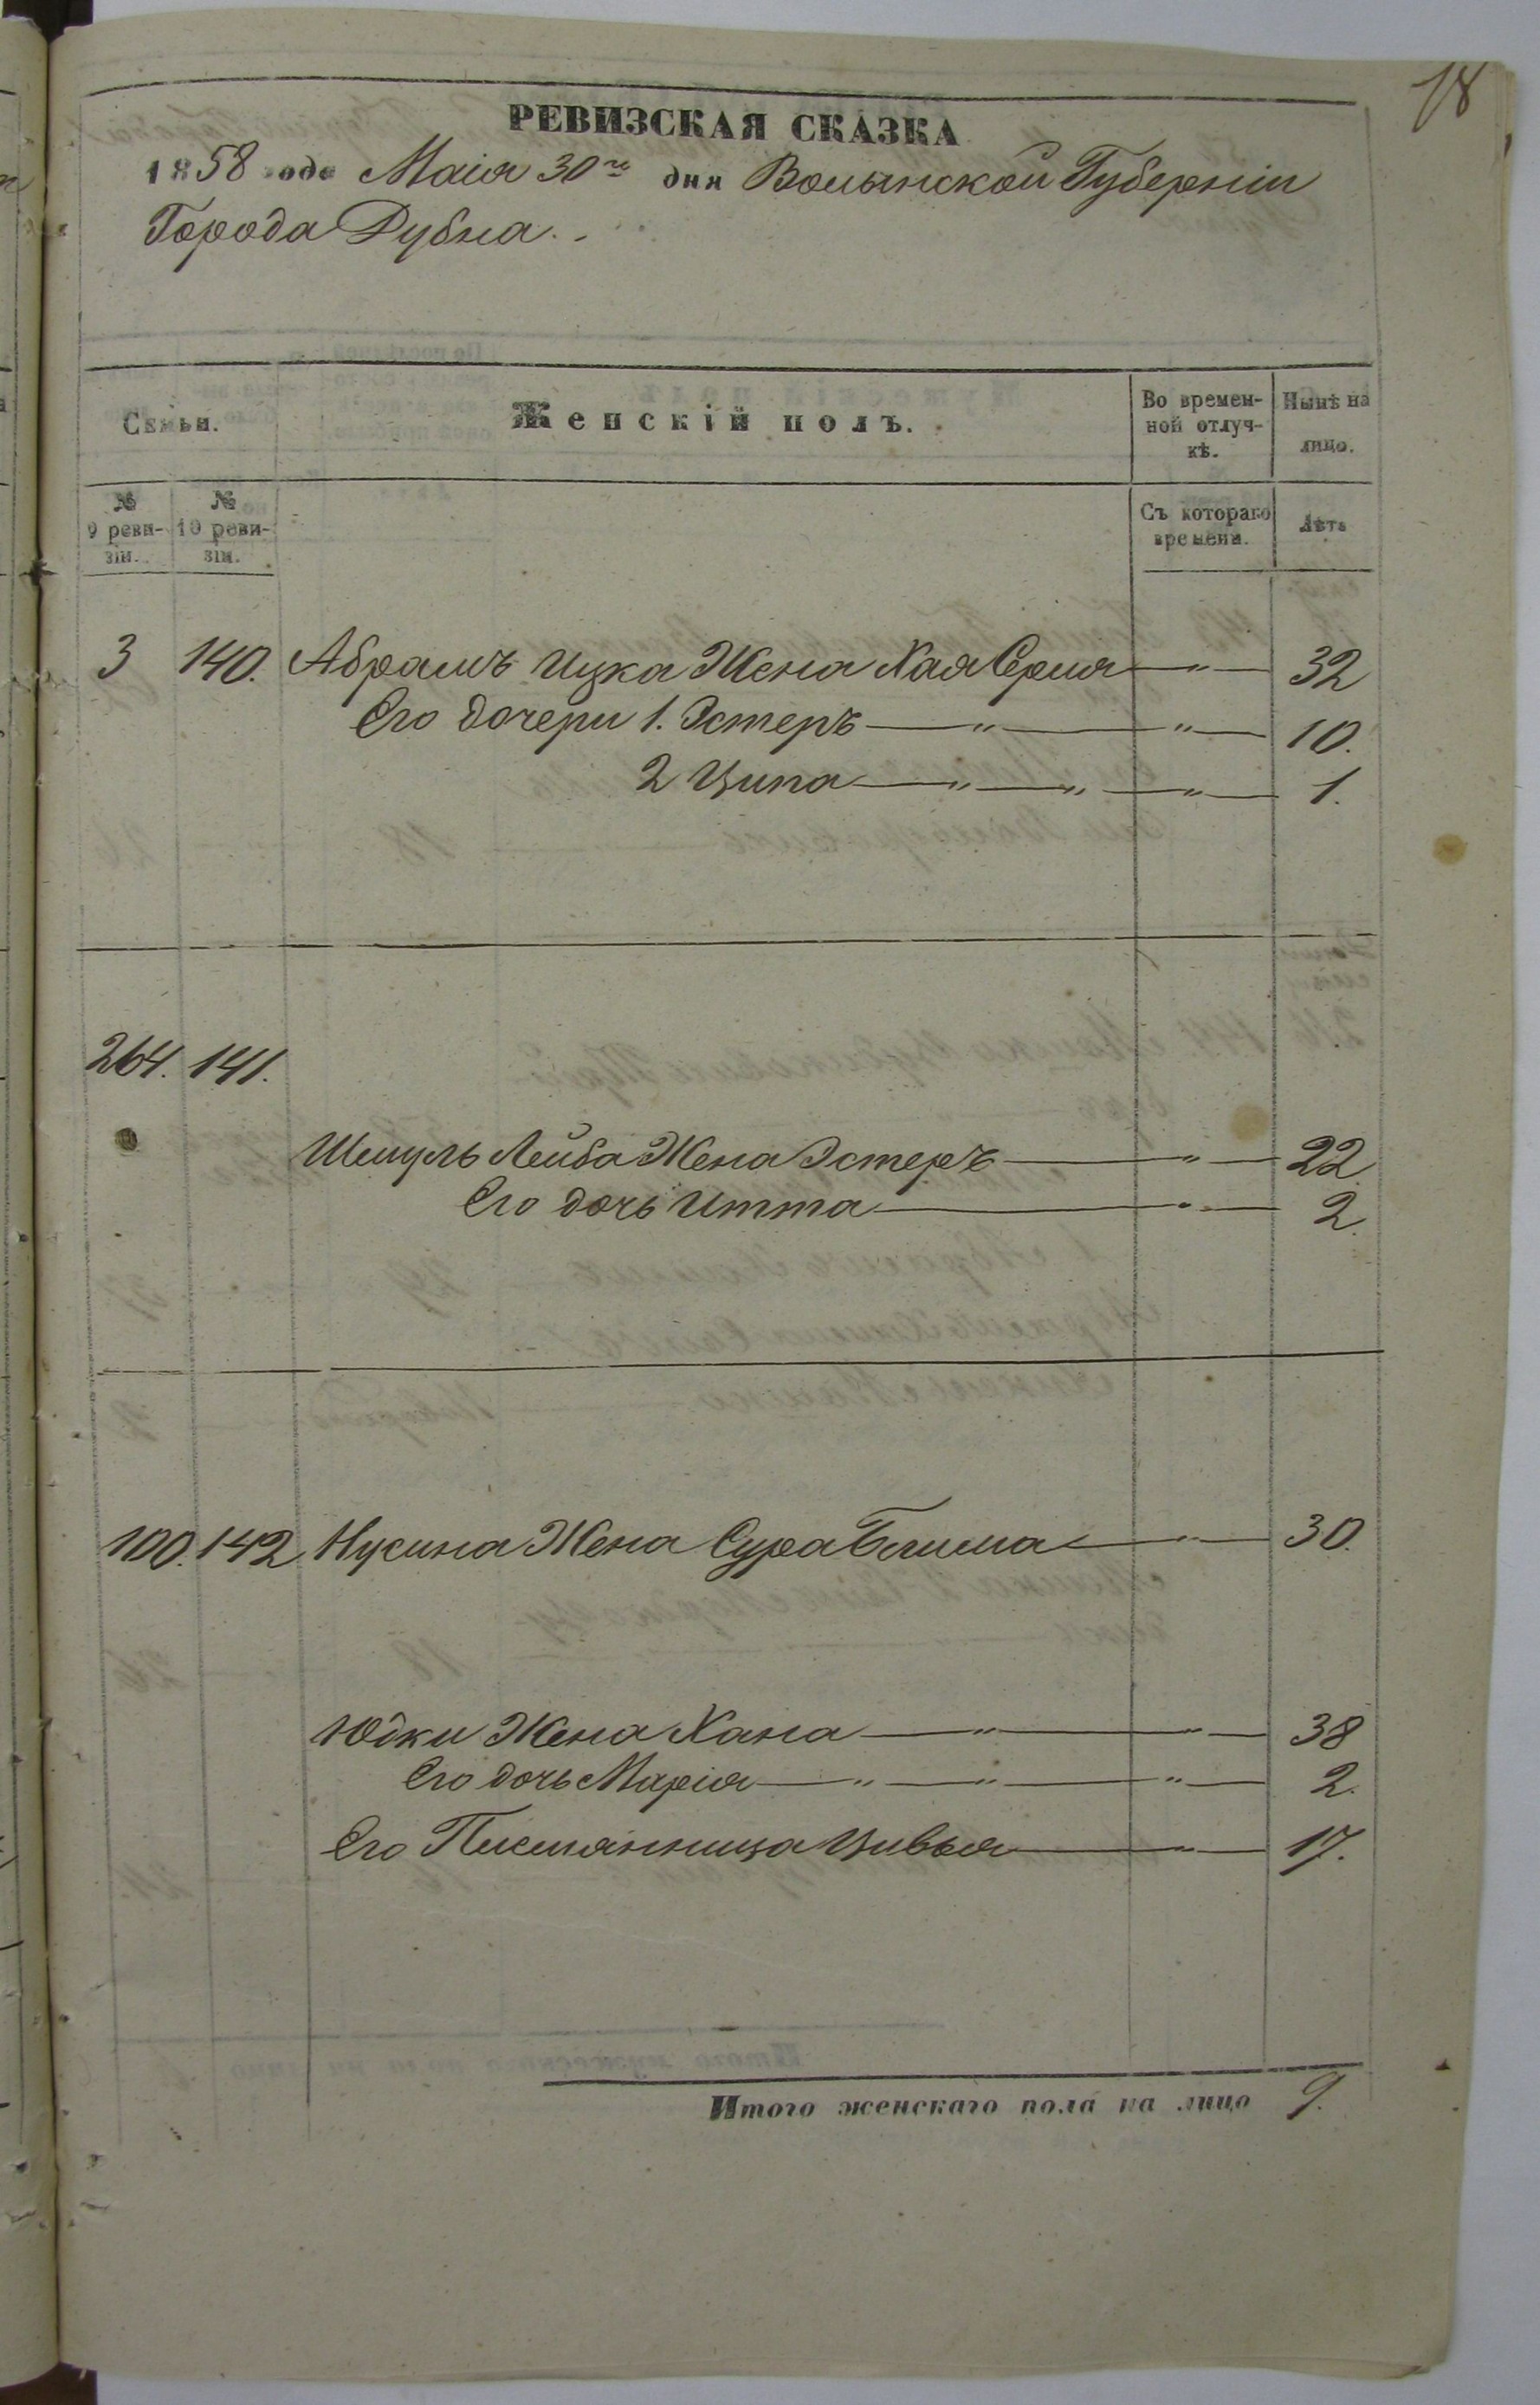 18
РЕВИЗСКАЯ СКАЗКА
1858 года Маія 30го дня Волынской Губерніи
Города Дубна.
Семьи.
Женскій полъ.
Во времен-
ной отлуч-
кѣ.
Нынѣ на
лицо.
№
9 реви-
зіи.
№
10 реви-
зіи.
Съ котораго
времени.
Лѣта
3 140. Абрамъ Ицка Жена Хая 32
Его дочери 1. Эстеръ — " — " — 10.
2 Ципа — " — " — " — 1.
264. 141.
Шмуль Лейба Жена Эстеръ — " — 22
Его дочь Итта — " — 2.
100. 142 Нусина Жена Сура Блима — " — 30.
Юдки Жена Хана — " — " — 38
Его дочь Марія — " — " — " — 2.
Его Племянница Цивья — " — 17.
Итого женскаго пола на лицо 9.